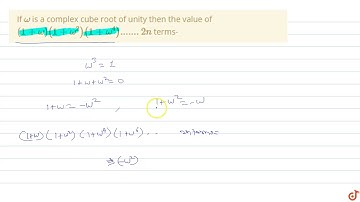 If ω is a complex cube root of unity then the value of
(1 + ω)(1 + ω²)(1 + ω⁴)....... 2n terms-
ω³ = 1
1+ω+ω² = 0
1+ω = -ω² , 1+ω² = -ω
(1+ω) (1+ω²) (1+ω⁴) (1+ω⁸) ..